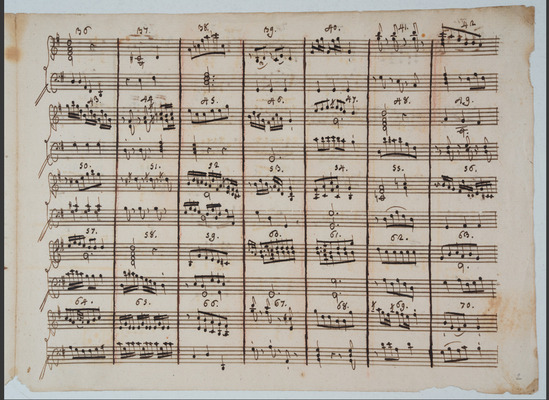 36 37. 38. 39. 40. 41. 42.
43. 44. 45. 46. 47. 48. 49.
50. 51. 52. 53. 54. 55. 56.
57. 58. 59. 60. 61. 62. 63.
64. 65. 66. 67. 68. 69. 70.
2